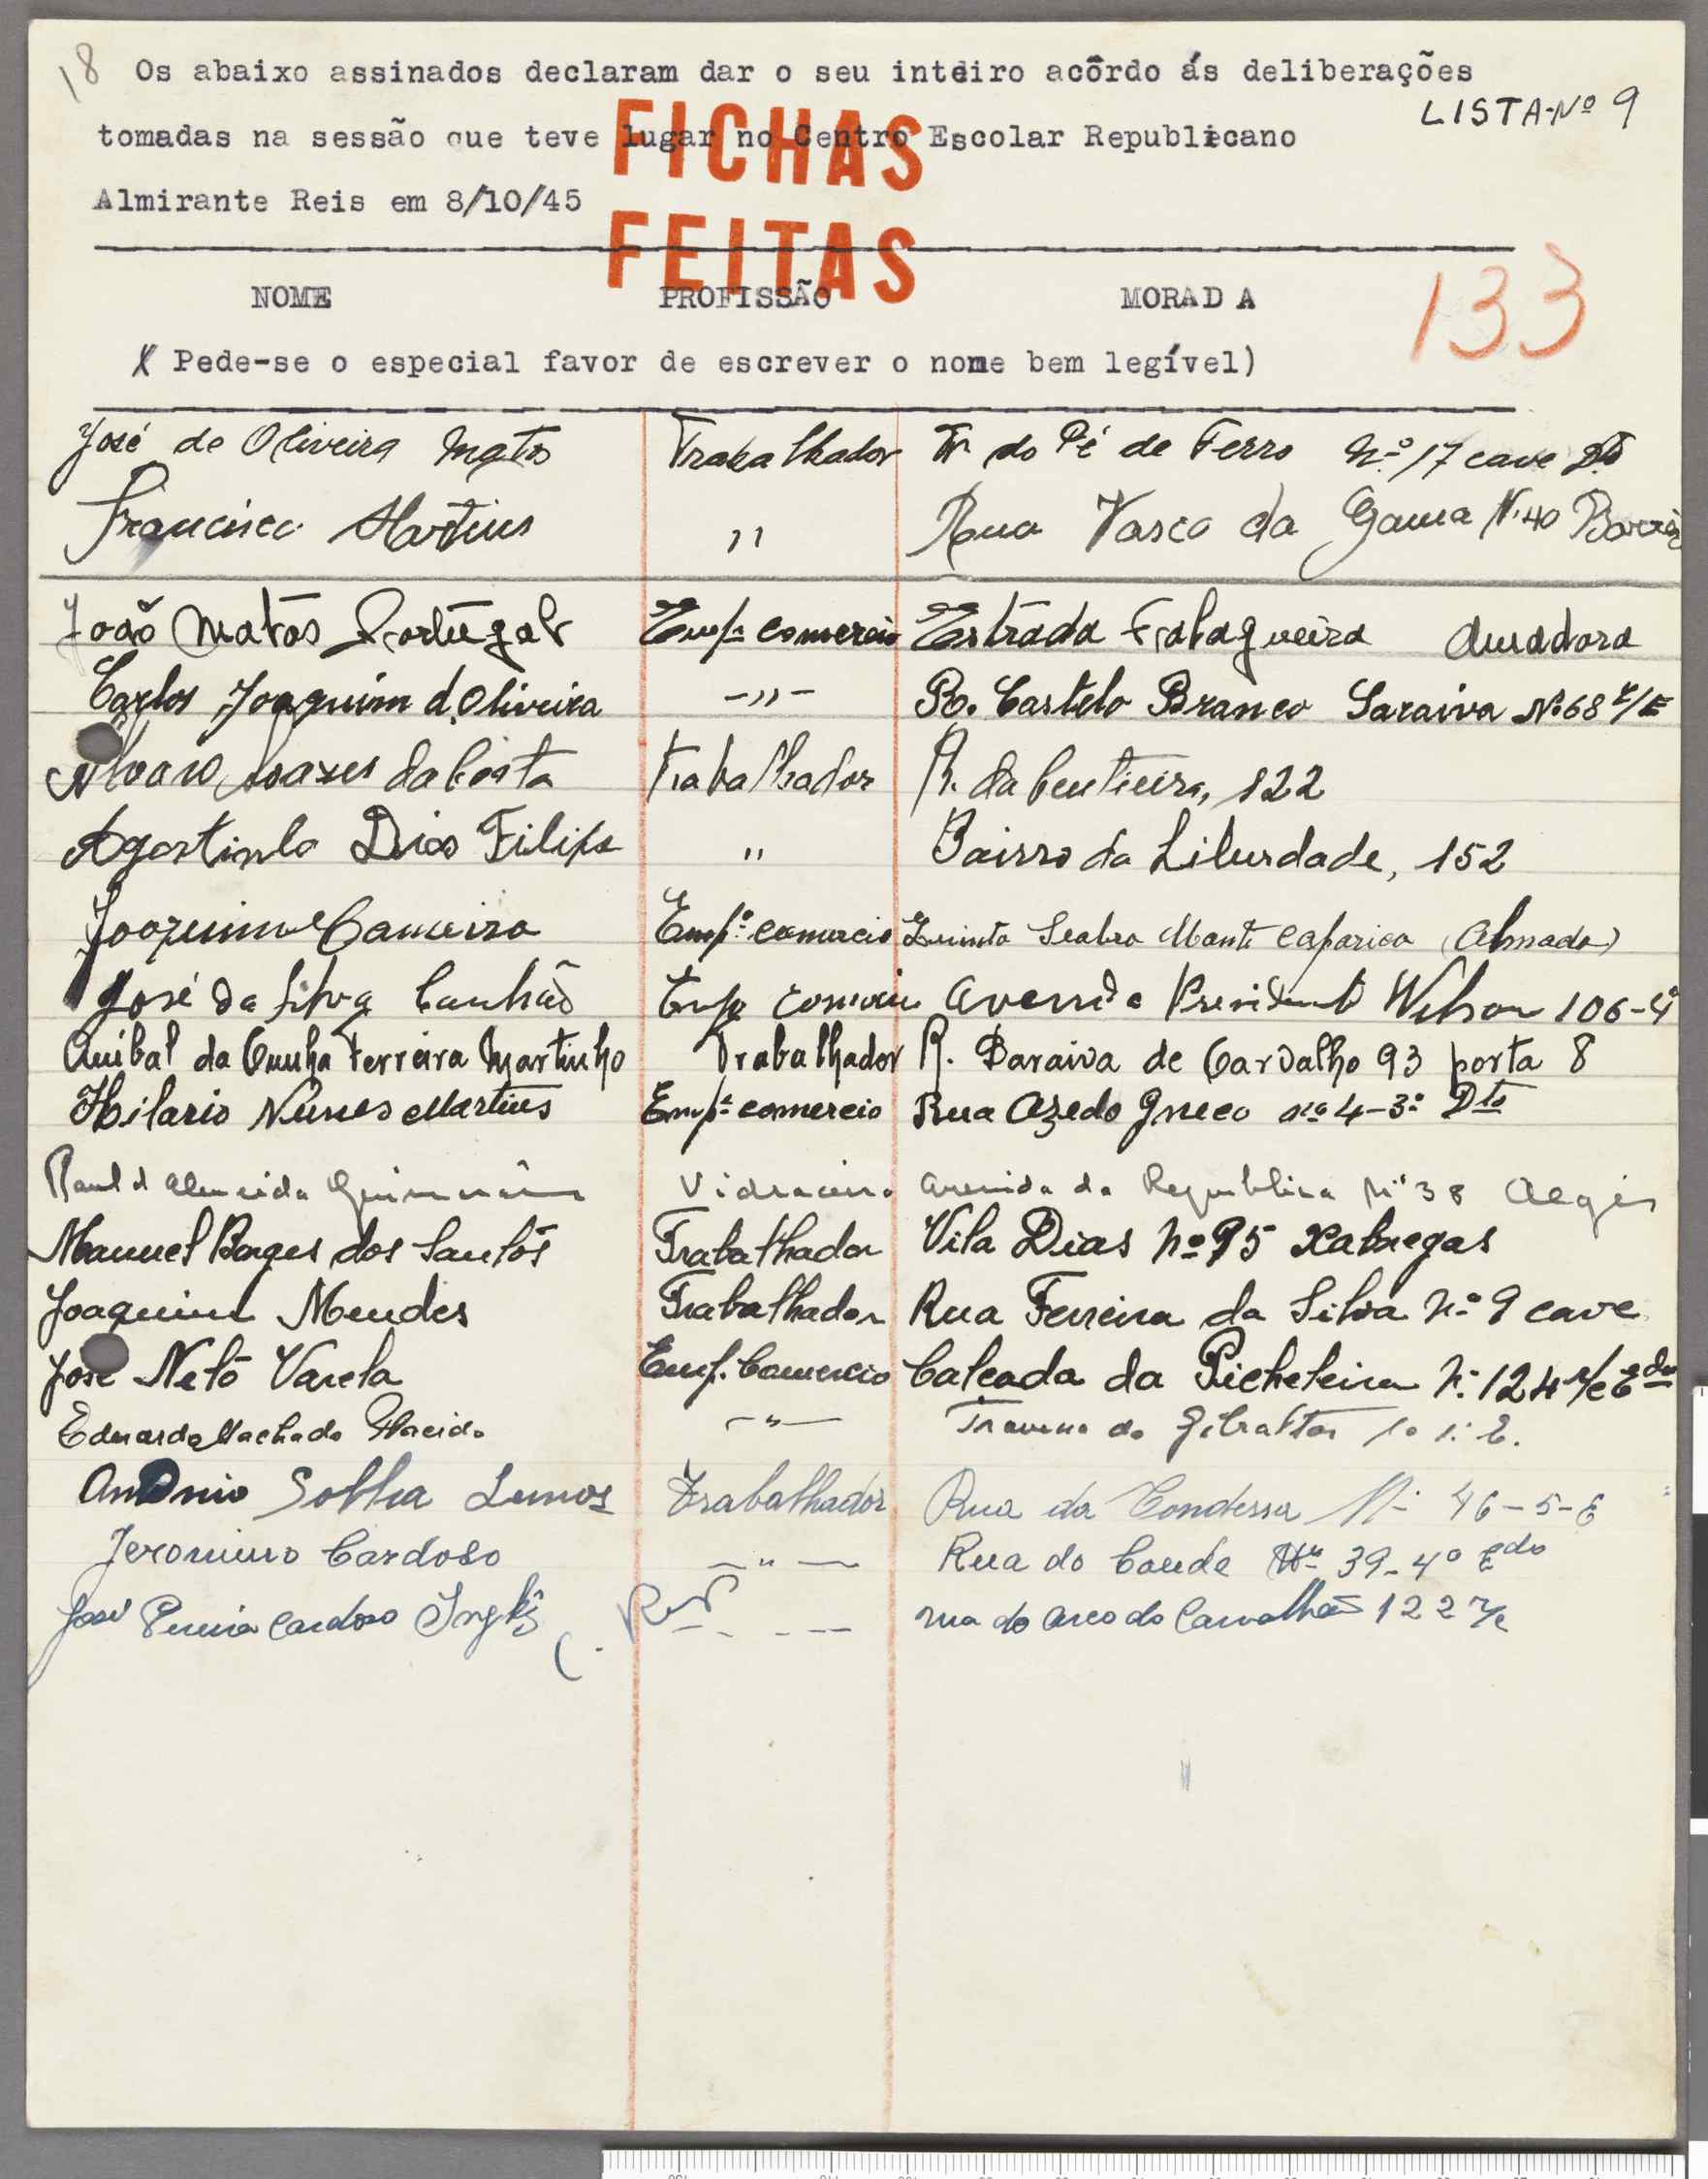 18 Os abaixo assinados declaram dar o seu inteiro acôrdo ás deliberações
LISTA-Nº 9
tomadas na sessão que teve lugar no Centro Escolar Republicano
Almirante Reis em 8/10/45
FICHAS
FEITAS
NOME PROFISSÃO MORADA
133
( Pede-se o especial favor de escrever o nome bem legível)
José de Oliveira Matos Trabalhador Tr. do Pé de Ferro Nº 17 cave Dtº
Francisco Martins " Rua Vasco da Gama Nº 40
João Matos Portugal Empº comercio Estrada Falagueira Amadora
Carlos Joaquim d'Oliveira -"- R. Castelo Branco Saraiva Nº 68 r/E
Alvaro Soares da Costa Trabalhador R. da Centieira, 122
Agostinho Dias Filipe " Bairro da Liberdade, 152
Joaquim Empº comercio Quinta Seabra Monte Caparica (Almada)
José da Silva Canhão Emp comercio Avenida Presidente Wilson 106-4º
Anibal da Cunha Ferreira Martinho Trabalhador R. Saraiva de Carvalho 93 porta 8
Hilario Nunes Martins Empº comercio Rua Azedo Gneco nº 4-3º Dto
Raul d'Almeida Guimarães Vidraceiro Avenida da Republica Nº 38 Algés
Manuel Borges dos Santos Trabalhador Vila Dias Nº 95 Xabregas
Joaquim Mendes Trabalhador Rua Ferreira da Silva Nº 9 cave
José Neto Varela Emp. Comercio Calçada da Picheleira Nº 124 r/c Edo
Eduardo Machado Placido -"- Travessa do Gibraltar 1º E.
Antonio Lemos Trabalhador Rua da Condessa Nº 46-5-E
Jeronimo Cardoso -"- Rua do Conde Nº 39-4º Edo
José Pereira Cardoso Inglês rua do Arco do Carvalhão 122 r/c